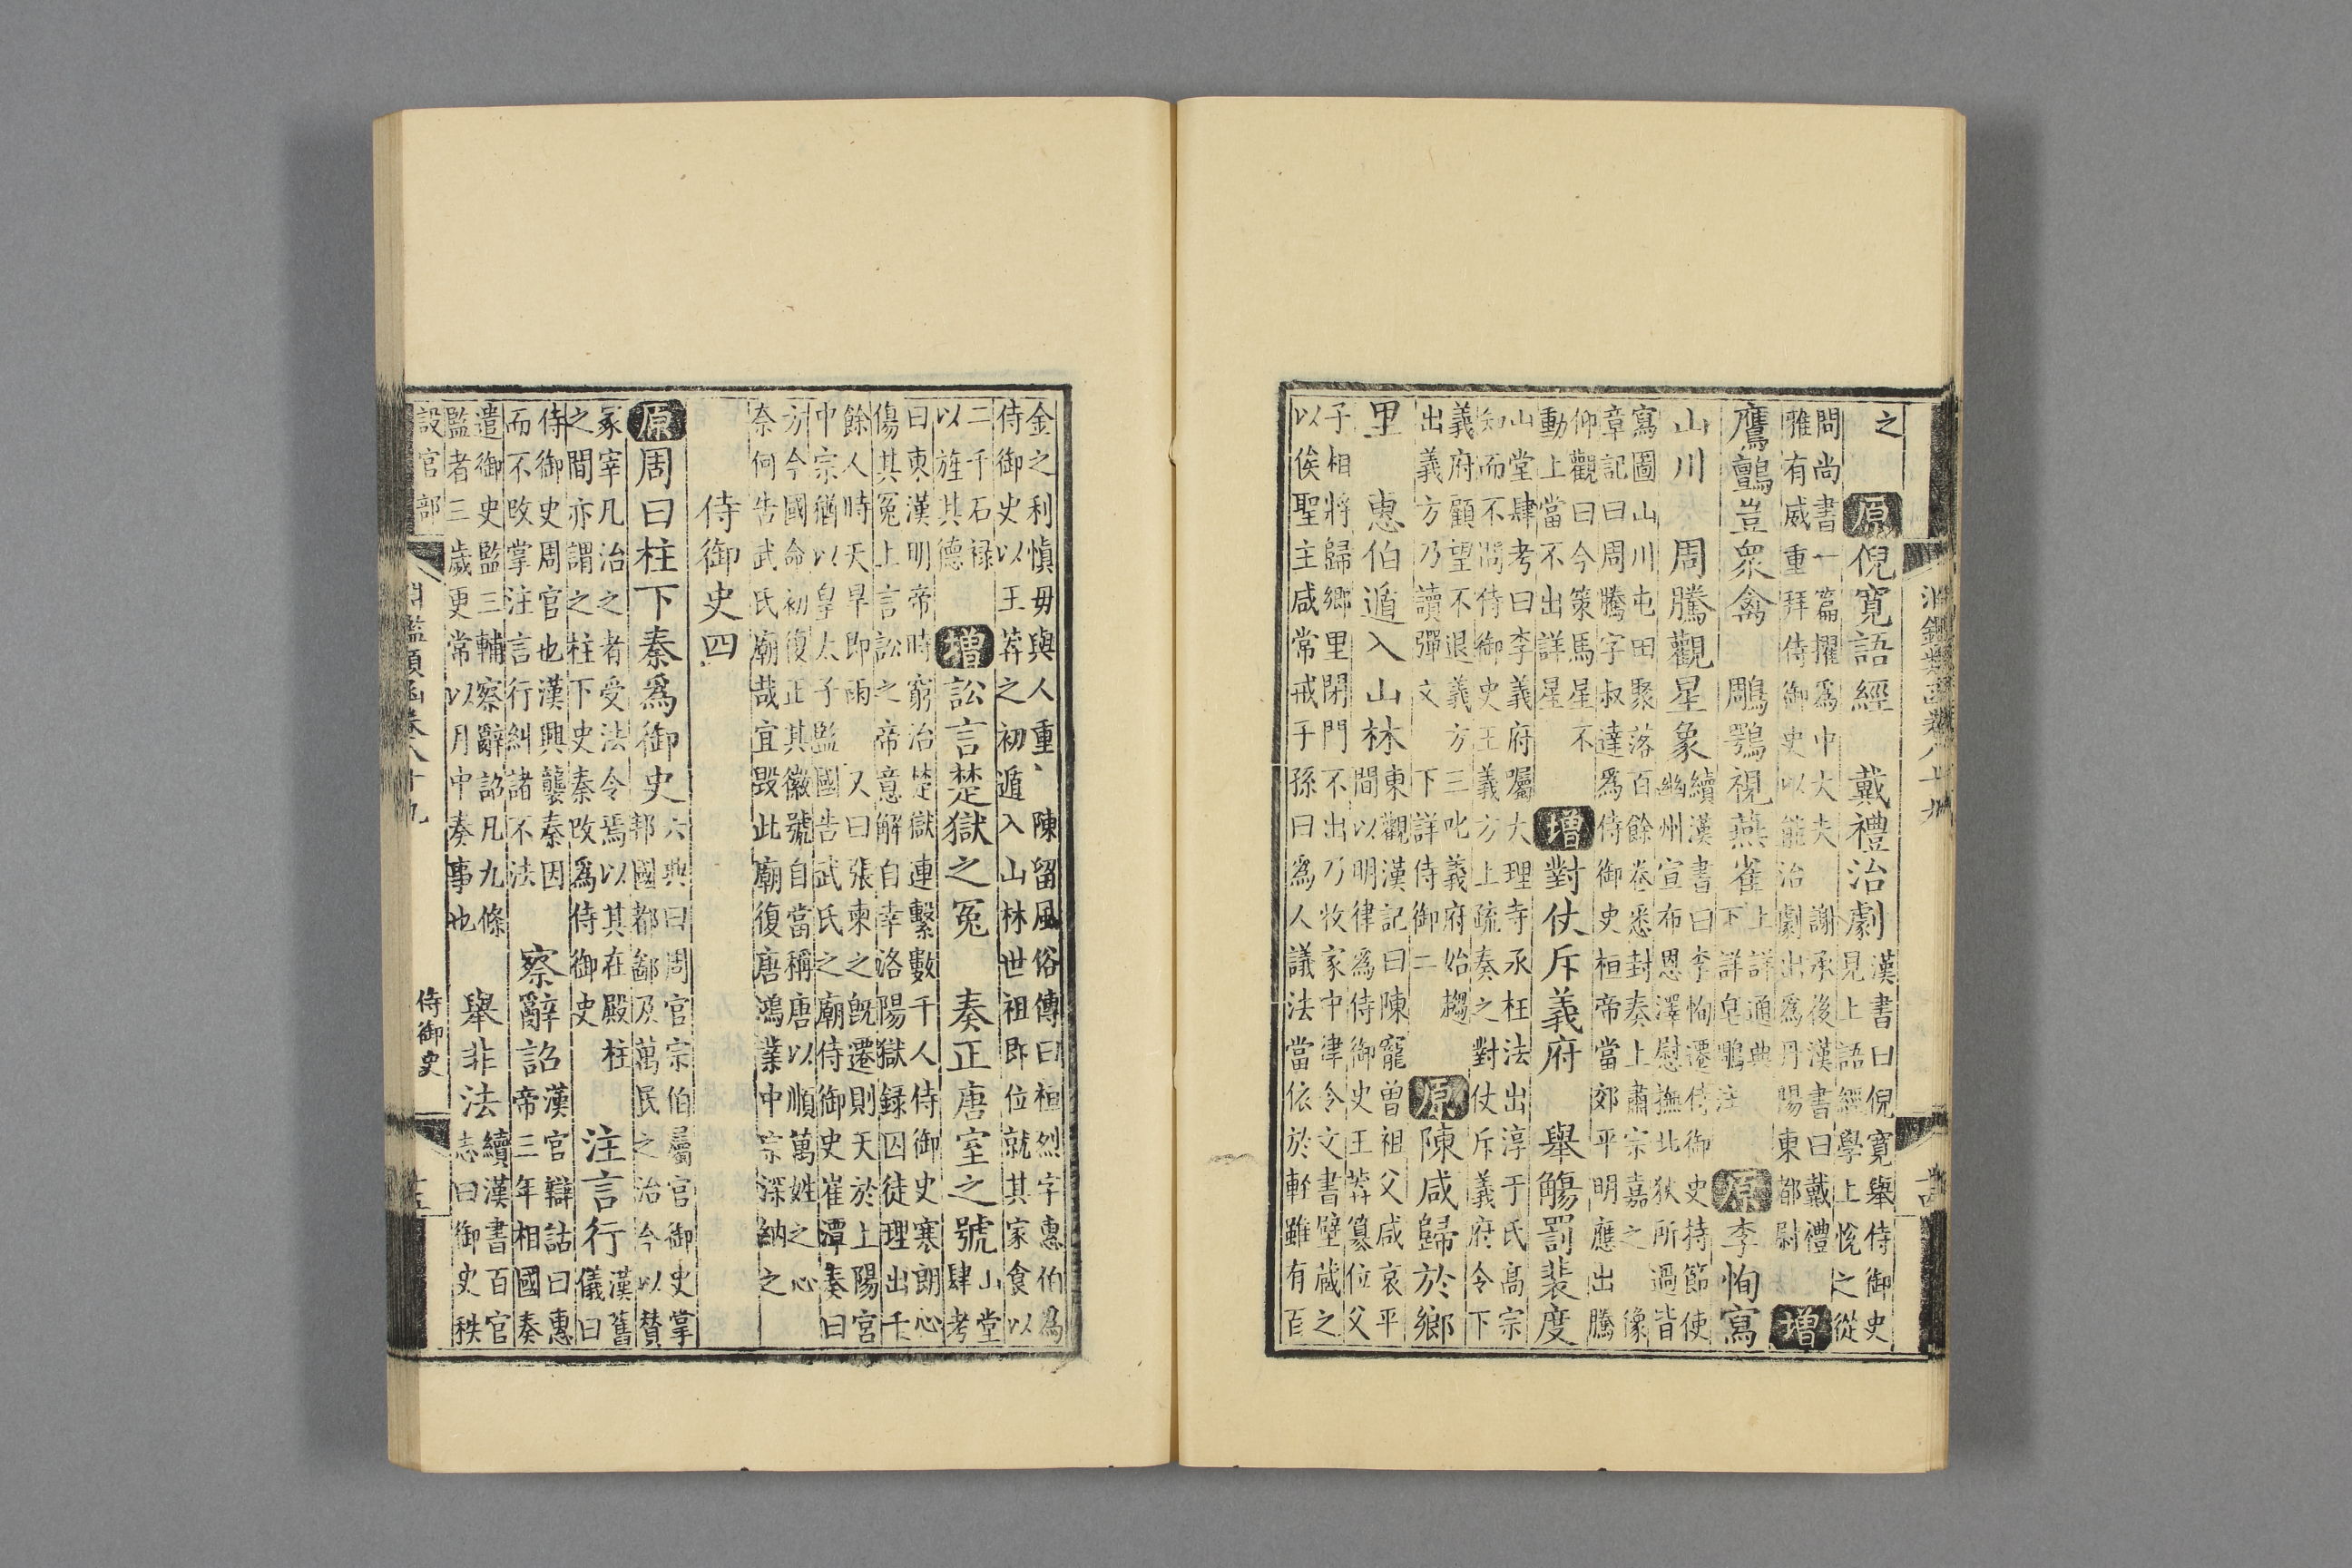 淵鑑類函卷八十九
之　原倪寬語經　戴禮治劇
漢書曰倪寬舉侍御史
見上語經學上悅之從
問尚書一篇擢爲中大夫　謝承後漢書曰戴禮
雅有威重拜侍御史以能治劇出爲丹陽東部都尉
增
鷹鸇豈衆禽　鵰鶚視燕雀
上詳通典
下詳皂鵰注
原李恂寫
山川　周騰觀星象
續漢書曰李恂遷侍御史持節使
幽州宣布恩澤慰撫北狄所過皆
寫圖山川屯田聚落百餘卷悉封奏上肅宗嘉之　豫
章記曰周騰字叔達爲侍御史桓帝當郊平明應出騰
仰觀曰今策馬星不
動上當不出詳星
增對仗斥義府　舉觴罰裴度
山堂肆考曰李義府屬大理寺丞枉法出淳于氏高宗
知而不問侍御史王義方上疏奏之對仗斥義府令下
義府顧望不退義方三叱義府始趨
出義方乃讀彈文　下詳侍御二
原陳咸歸於鄉
里　惠伯遁入山林
東觀漢記曰陳寵曾祖父咸哀平
間以明律爲侍御史王莽篡位父
子相將歸鄉里閉門不出乃收家中律令文書壁藏之
以俟聖主咸常戒子孫曰爲人議法當依於輕雖有百
金之利慎毋與人重、　陳留風俗傳曰桓烈字惠伯爲
侍御史以王莽之初遁入山林世祖即位就其家食以
二千石祿
以旌其德
增訟言楚獄之冤　奏正唐室之號
山堂
肆考
曰東漢明帝時窮治楚獄連繫數千人侍御史寒朗心
傷其冤上言訟之帝意解自幸洛陽獄録囚徒理出千
餘人時天旱即雨　又曰張柬之旣遷則天於上陽宮
中宗猶以皇太子監國告武氏之廟侍御史崔渾奏曰
方今國命初復正其徽號自當稱唐以順萬姓之心
奈何告武氏廟哉宜毀此廟復唐鴻業中宗深納之
侍御史四
原周曰柱下秦爲御史
六典曰周官宗伯屬官御史掌
邦國都鄙及萬民之治令以賛
冢宰凡治之者受法令焉以其在殿柱
之間亦謂之柱下史秦改爲侍御史
注言行
漢舊
儀曰
侍御史周官也漢興襲秦因
而不改掌注言行糾諸不法
察辭詔
漢官辯詁曰惠
帝三年相國奏
遣御史監三輔察辭詔凡九條
監者三歲更常以月中奏事也
舉非法
續漢書百官
志曰御史秩
設官部　淵鑑類函卷八十九　侍御史